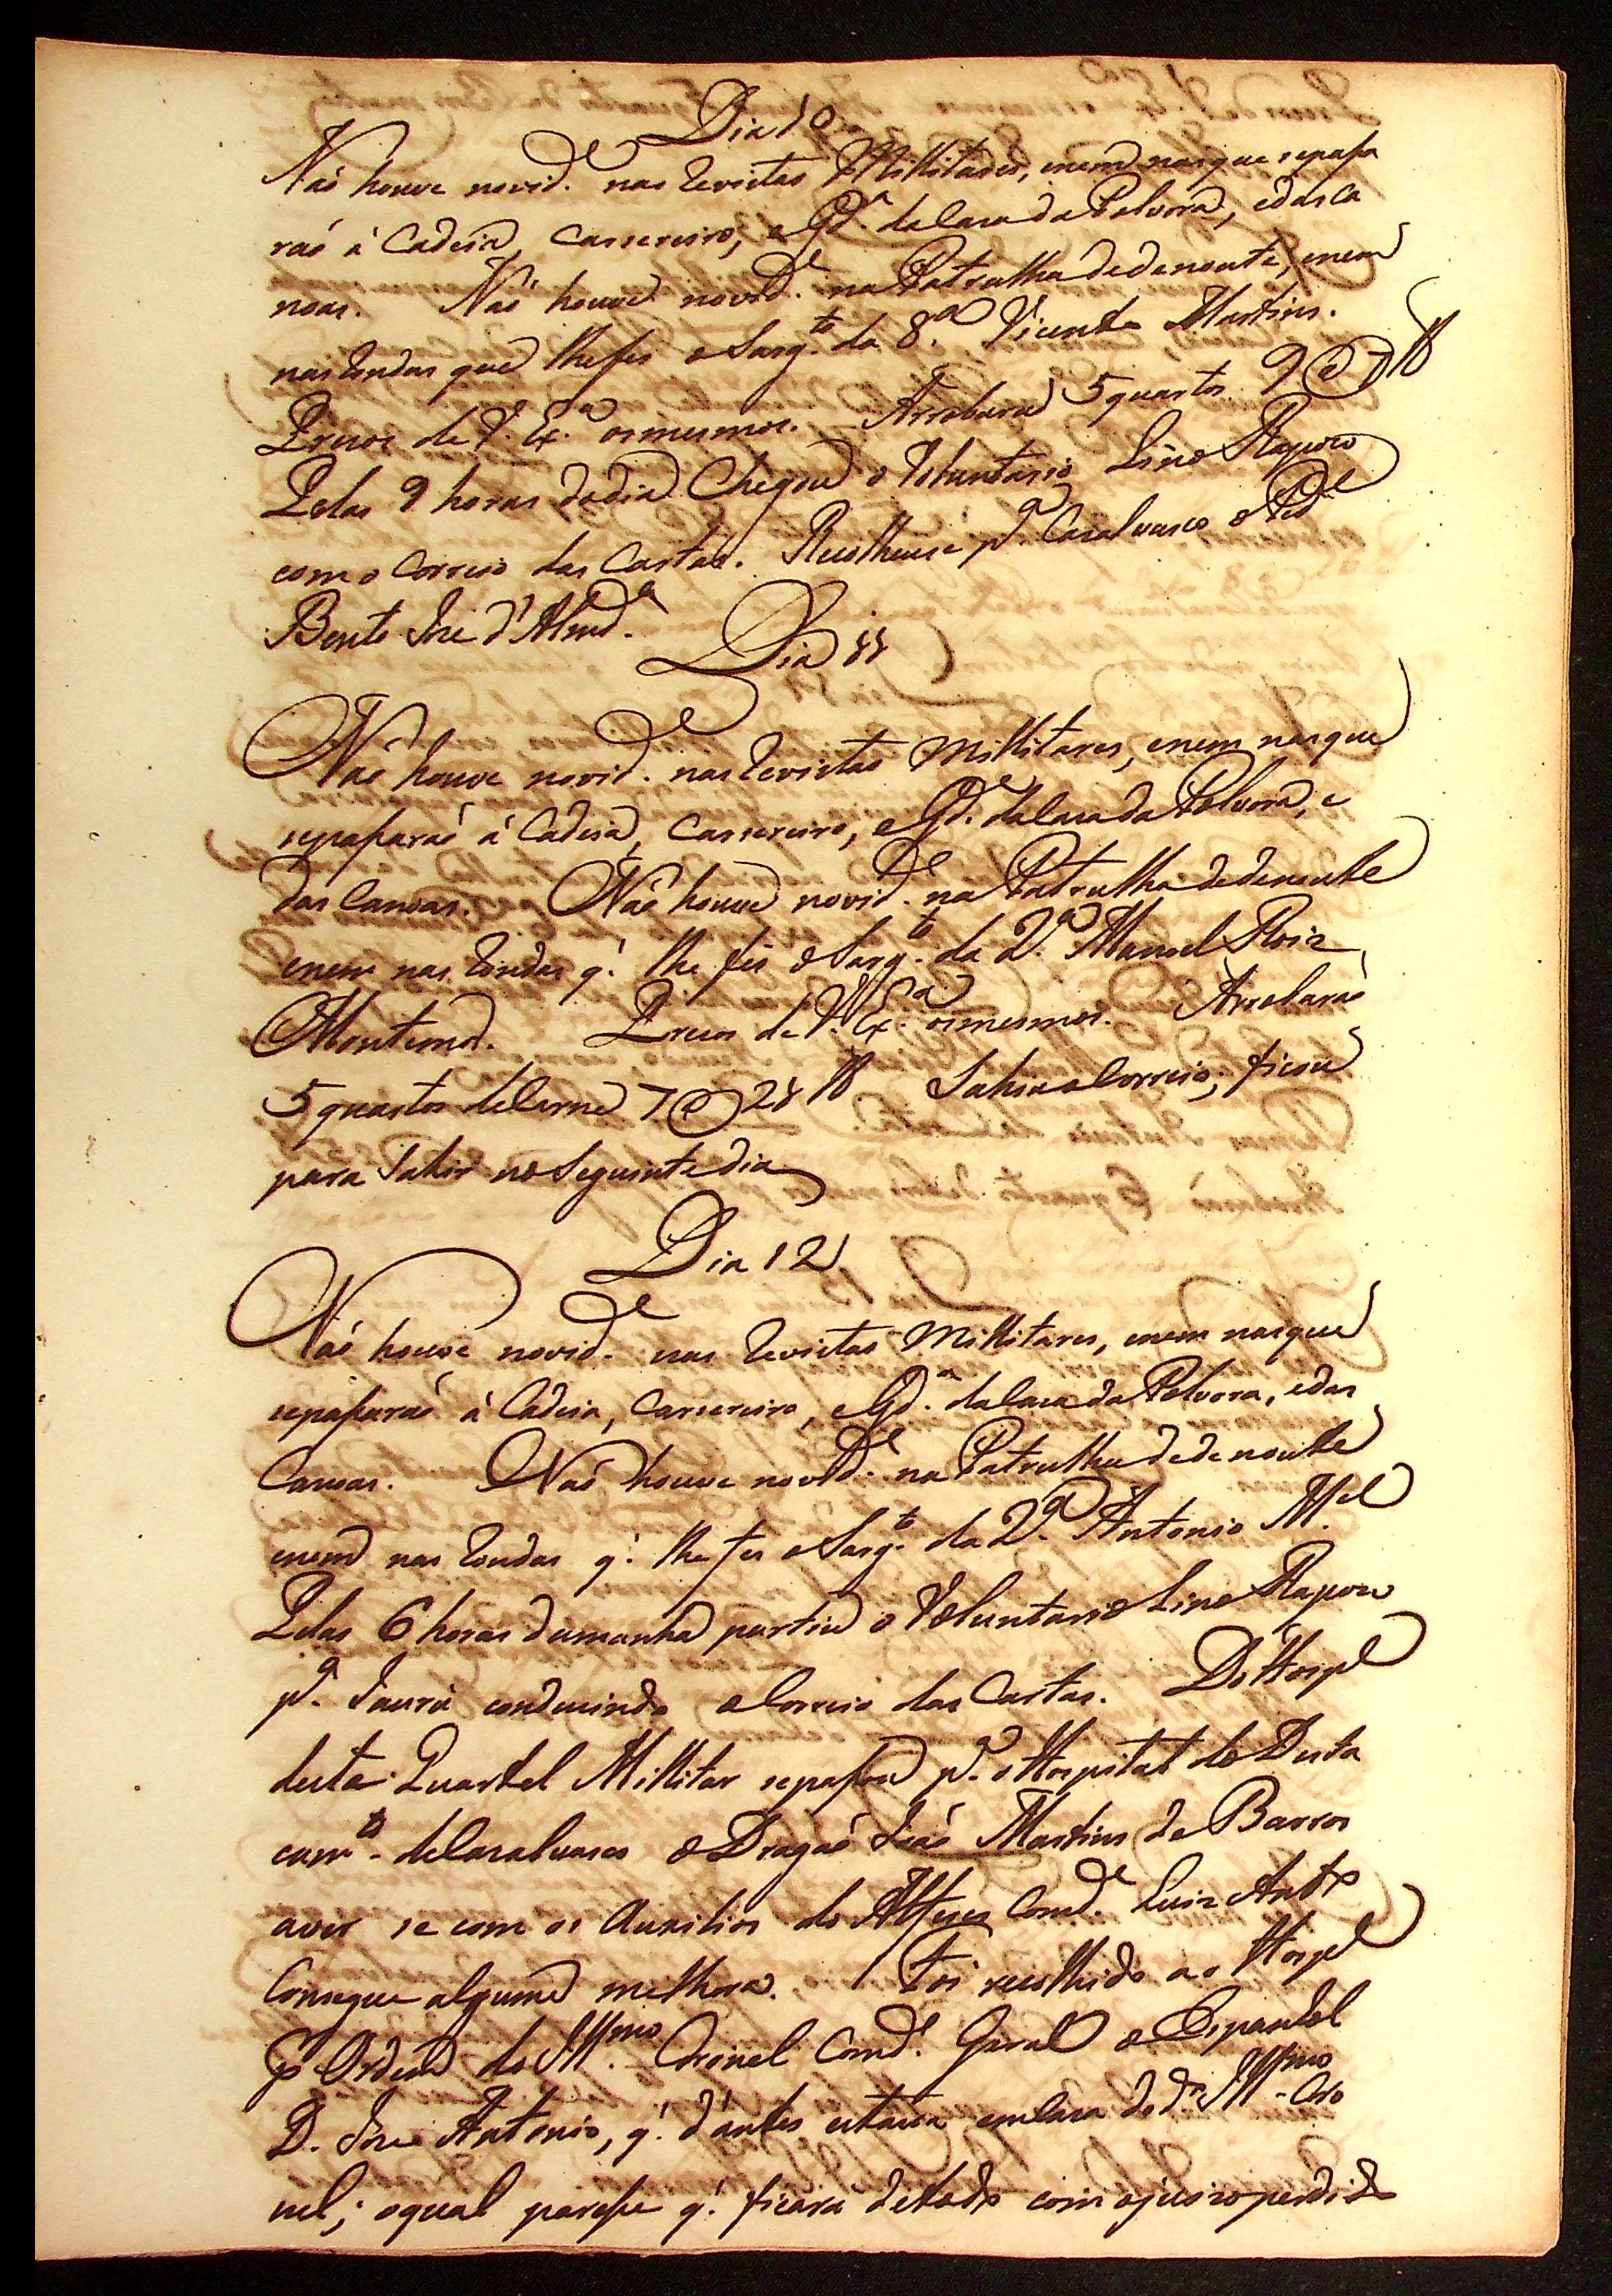 Dia 10
Naõ houve novid.e nas Revistas Millitares, enem nasque sepaßa
raõ á Cadeia, Carsereiro, eGd.a daCaza daPolvora, edasCa
noas. Naõ houve novid.e naPatrulha dedenoute, enem
nasRondas que lhefes oSarg.to da 8.a Vicente Martins.
Prezos de V. Ex.a osmesmos. Arrobaraõ 5 quartos 9 @ 7 lb
Pelas 9 horas dodia Chegou o Voluntario Lino Rapozo
com o Correio das Cartas. Recolheuse p.a Cazalvasco o Ped.e
Bento Jozé d'Almd.a
Dia 11
Naõ houve novid.e nasRevistas Millitares, enem nasque
sepaßaraõ á Cadeia, Carsereiro, eGd.a daCaza daPolvora, e
das Canoas. Naõ houve novid.e na Patrulha dedenoute
enem nas Rondas q.' lhe fes oSarg.to da 2.a Manoel Roiz
Montemor. Prezos de V. Ex.a osmesmos. Arrobaraõ
5 quartos deCarne 7 @ 28 lb Sahiu oCorreio; ficou
para Sahir no Seguinte dia
Dia 12
Naõ houve novid.e nas Revistas Millitares, enem nasque
sepaßaraõ á Cadeia, Carsereiro, eGd.a daCaza daPolvora, edas
Canoas. Naõ houve novid.e na Patrulha dedenoute
enem nas Rondas q.' lhe fes oSarg.to da 2.a Antonio M.el
Pelas 6 horas damanhã partiu o Voluntario Lino Rapozo
p.a Jaurú conduzindo oCorreio das Cartas. DoHospl
deste Quartel Millitar sepaßou p.a oHospital do Desta
cam.to deCazalvasco o Dragaõ Joaõ Martins de Barros
aver se com os Auxilios do Alferes Comd.e Luiz Ant.o
Consegue alguma melhora. Foi recolhido ao Hospl
p Ordem do Ill.mo Coronel Comd.e Geral o Espanhol
D. Jozé Antonio, q.' d'antes estava emCaza do d.o Ill.mo Coro
nel; oqual pareße q.' ficara detodo com ojuizo perdido